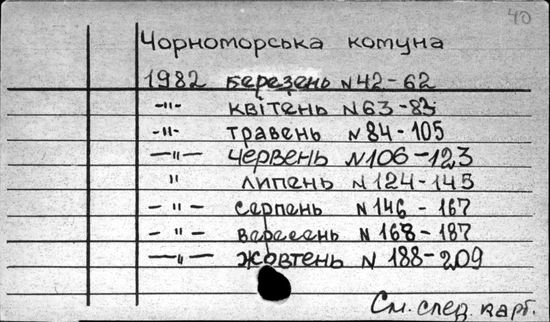 40
Чорноморська комуна
1982 березень N 42-62
-"- квітень N 63-83
-"- травень N 84-105
-"- червень N 106-123
" липень N 124-145
- " - серпень N 146 - 167
- " - вересень N 168-187
-"- жовтень N 188-209
См. след. карт.